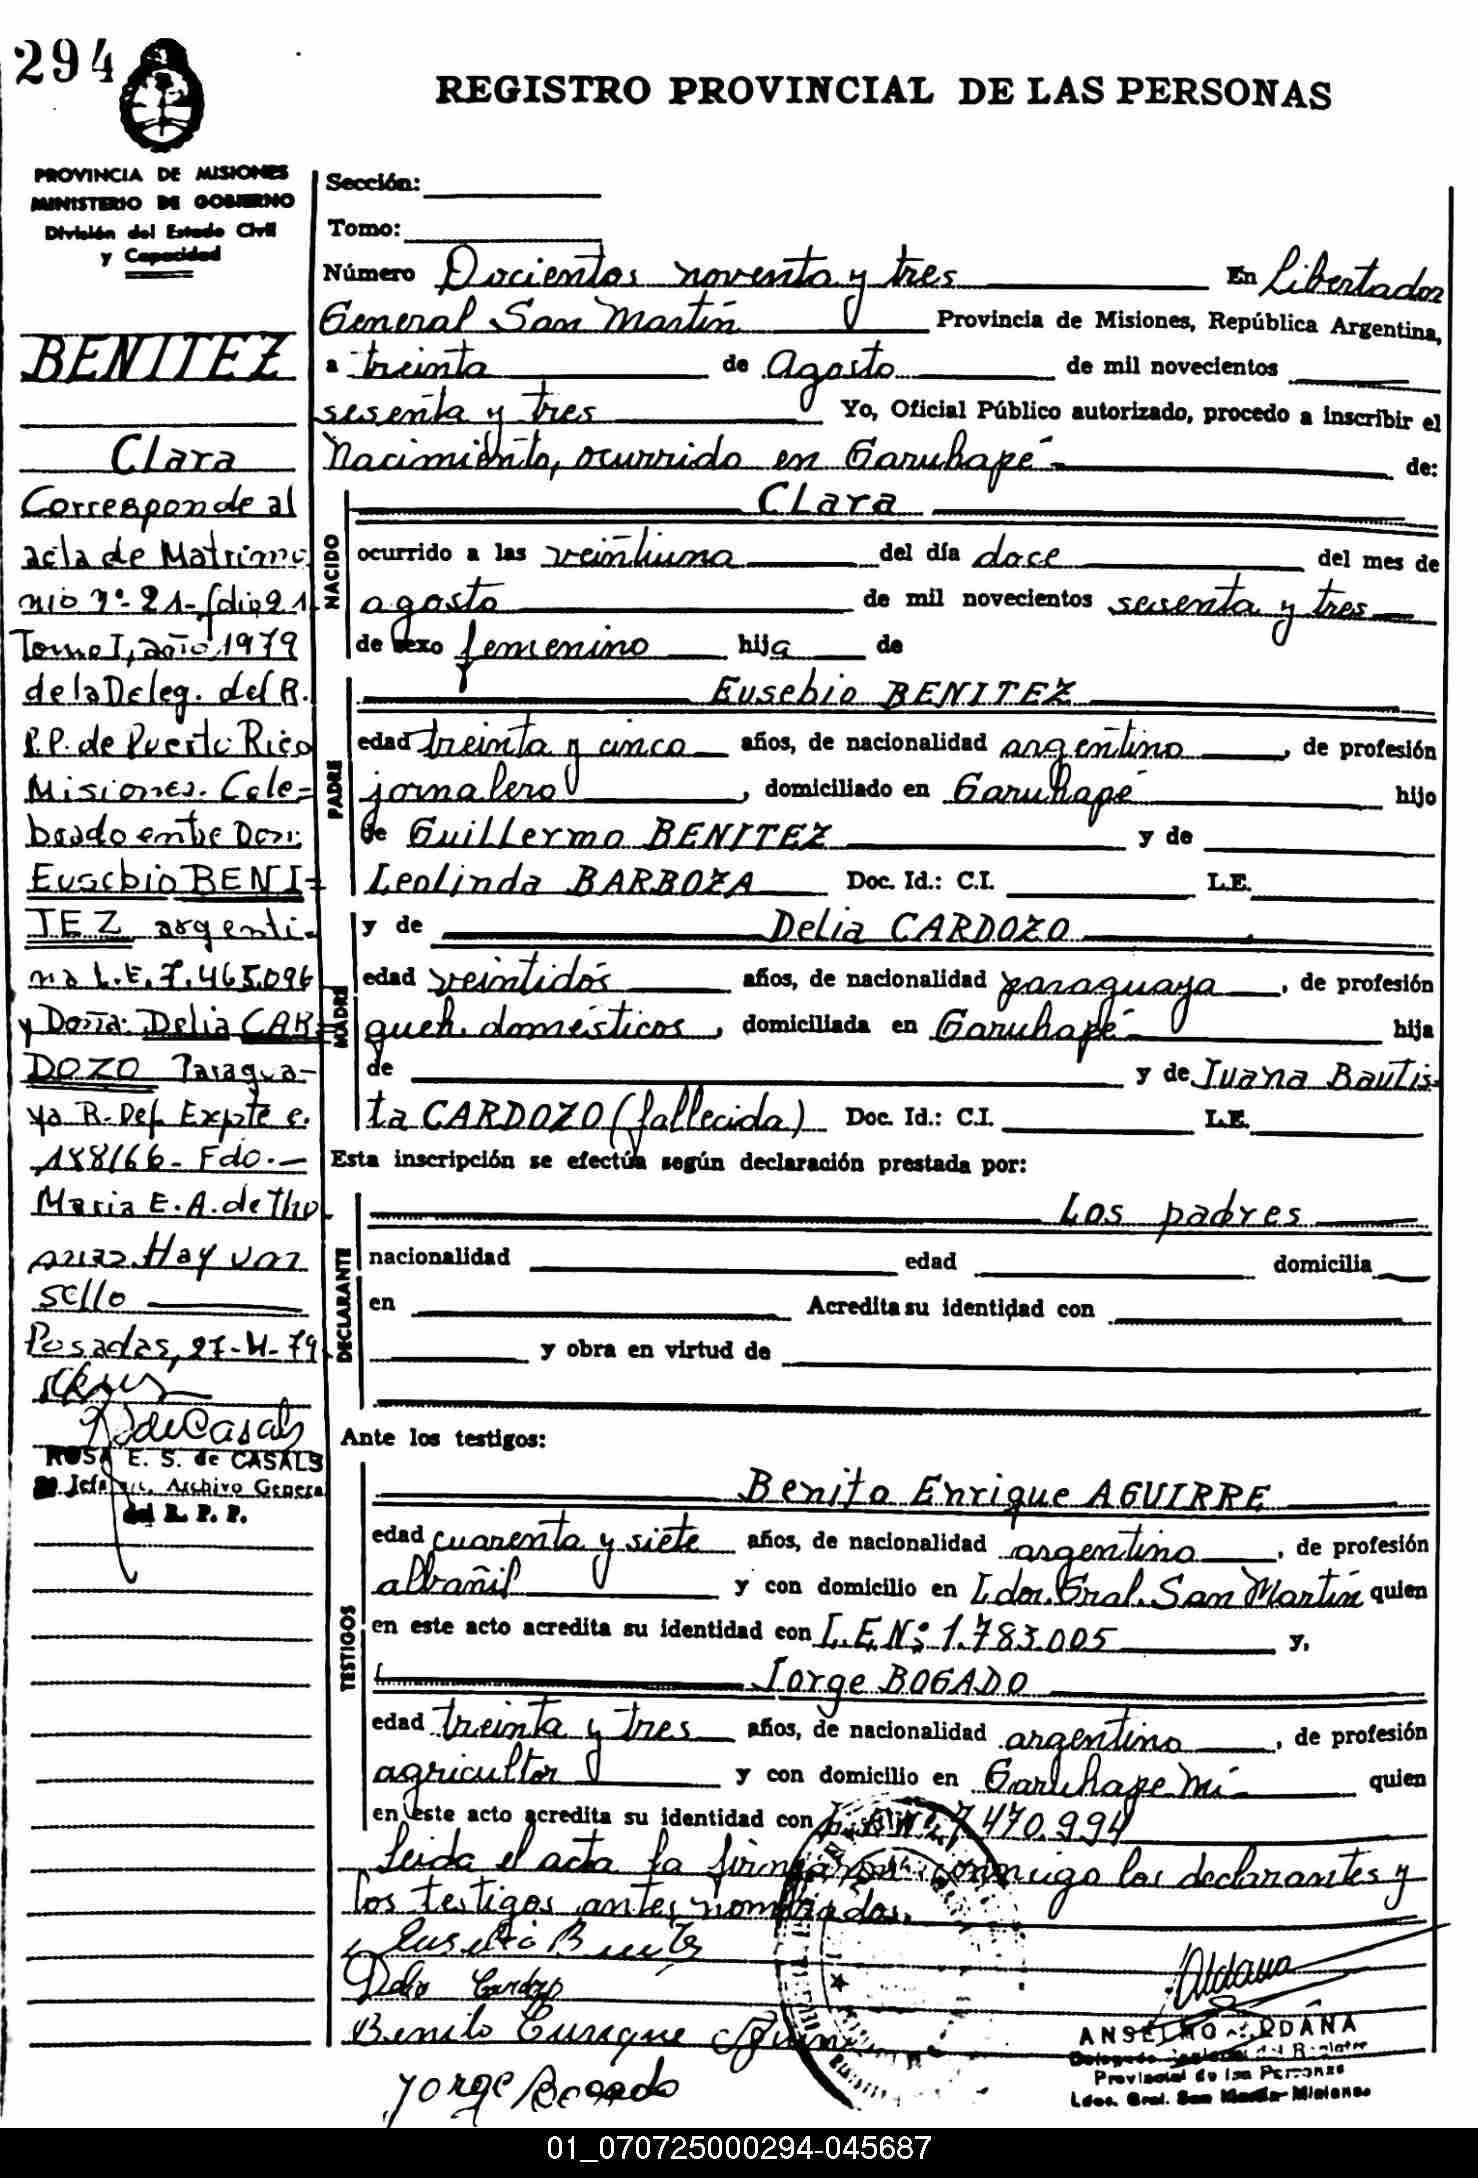 294
REGISTRO PROVINCIAL DE LAS PERSONAS
PROVINCIA DE MISIONES
MINISTERIO DE GOBIERNO
División del Estado Civil
y Capacidad
BENITEZ
Clara
Corresponde al
acta de Matrimo
nio Nº 21 - folio 21
Tomo I, año 1979
de la Deleg. del R.
P.P. de Puerto Rico
Misiones. Cele=
brado entre Don:
Eusebio BENI=
TEZ argenti=
no L.E. 7.465.096
y Doña: Delia CAR=
DOZO Paragua-
ya R. Def. Expte c.
188/66 - Fdo. -
Maria E. A. de
Hay un
sello
Posadas, 27-
R S de Casals
ROSA E. S. de CASALS
Jefa Archivo General
del R. P. P.
Sección:
Tomo:
Número Docientos noventa y tres En Libertador
General San Martín Provincia de Misiones, República Argentina,
a treinta de Agosto de mil novecientos
sesenta y tres Yo, Oficial Público autorizado, procedo a inscribir el
Nacimiento, ocurrido en Garuhapé - de:
NACIDO
CLara
ocurrido a las veintiuna del día doce del mes de
agosto de mil novecientos sesenta y tres
de sexo femenino hija de
PADRE
Eusebio BENITEZ
edad treinta y cinco años, de nacionalidad argentino, de profesión
jornalero, domiciliado en Garuhapé hijo
de Guillermo BENITEZ y de
Leolinda BARBOZA Doc. Id.: C.I. L.E.
MADRE
y de Delia CARDOZO
edad veintidós años, de nacionalidad paraguaya, de profesión
queh. domésticos, domiciliada en Garuhapé - hija
de y de Juana Bautis=
ta CARDOZO (fallecida) Doc. Id.: C.I. L.E.
Esta inscripción se efectúa según declaración prestada por:
DECLARANTE
Los padres
nacionalidad edad domicilia
en Acredita su identidad con
y obra en virtud de
Ante los testigos:
TESTIGOS
Benito Enrique AGUIRRE
edad cuarenta y siete años, de nacionalidad argentino, de profesión
albañil y con domicilio en Ldor. Gral. San Martín quien
en este acto acredita su identidad con L.E.Nº 1.783.005 y,
Jorge BOGADO
edad treinta y tres años, de nacionalidad argentino, de profesión
agricultor y con domicilio en Garuhapé Mí - quien
en este acto acredita su identidad con L.E.Nº 7.470.994
Leida el acta la firmaron conmigo los declarantes y
los testigos antes nombrados.
Eusebio Benitez
Delia Cardozo
Benito Enrique Aguirre
Jorge Bogado
Aldana
ANSELMO ALDANA
Delegado del Registro
Provincial de las Personas
Ldor. Gral. San Martín - Misiones
01_070725000294-045687